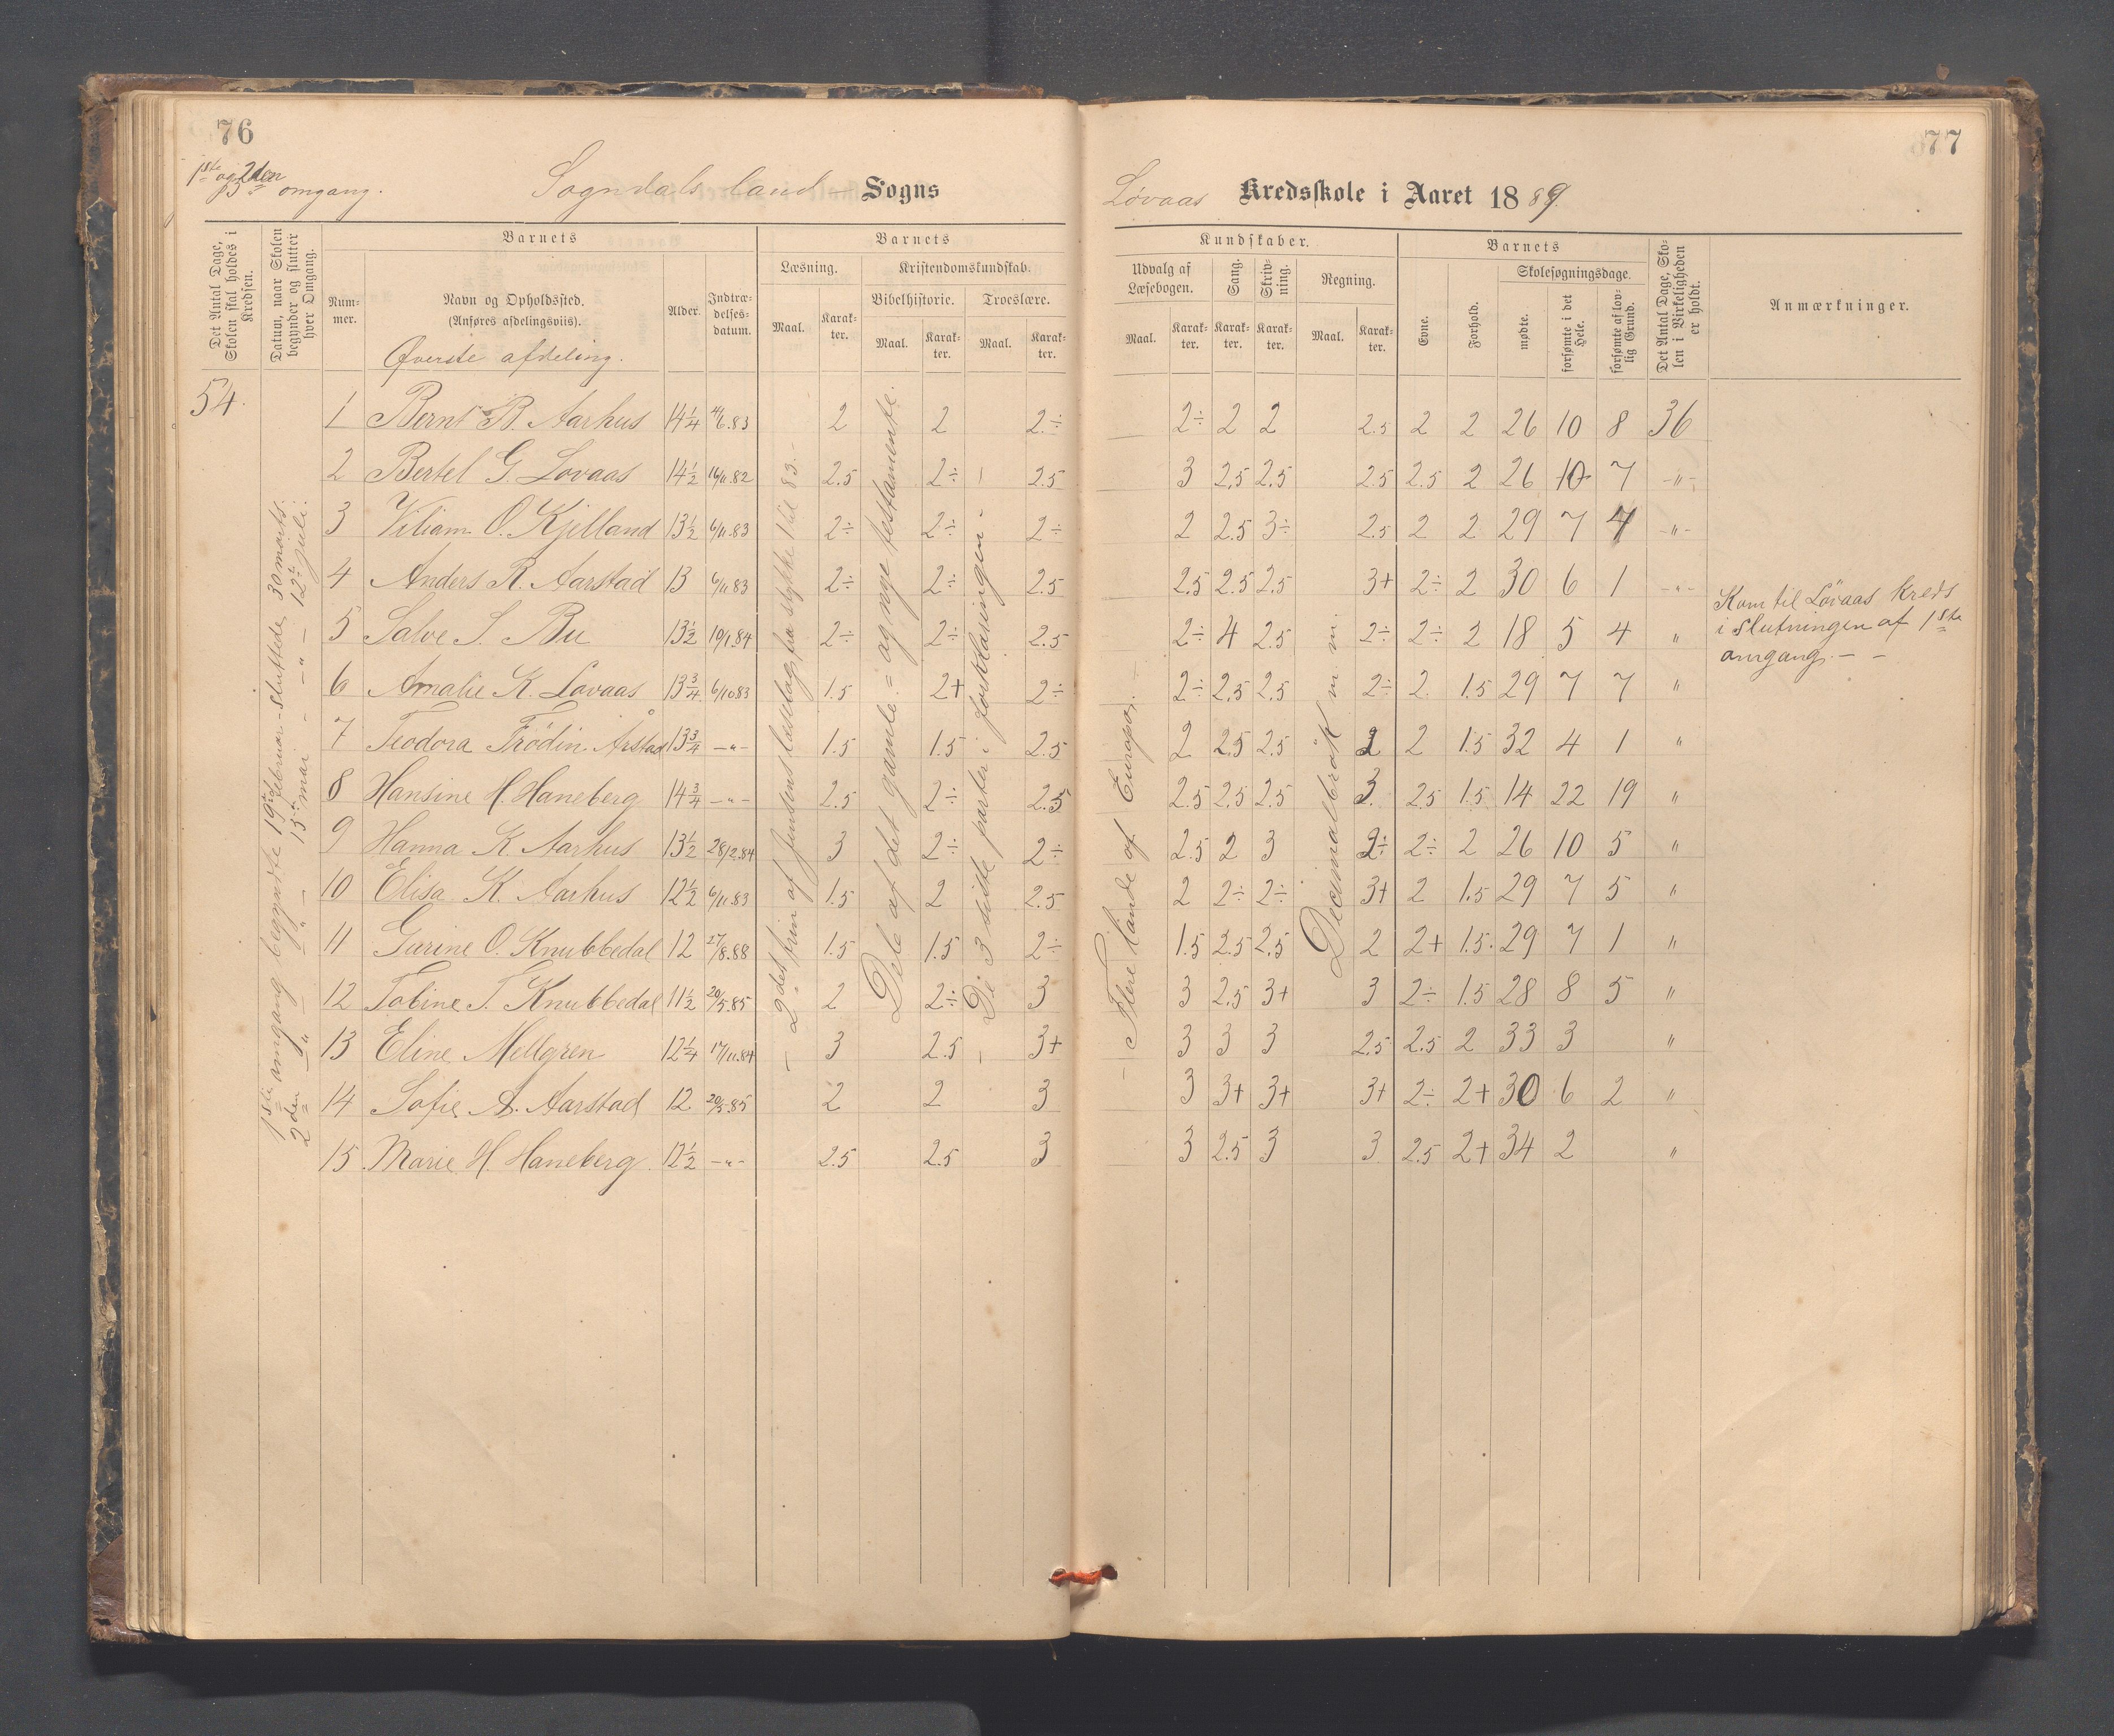 76
1ste og 2den
omgang.
Sogndals land Sogns
Det Antal Dage, Skolen skal holdes i Kredsen.
Datum, naar Skolen begynder og slutter hver Omgang.
Barnets
Num-mer.
Navn og Opholdssted. (Anføres afdelingsviis).
Alder.
Indtræ-delses-datum.
Barnets
Læsning.
Maal.
Karak-ter.
Kristendomskundskab.
Bibelhistorie.
Maal.
Karak-ter.
Troeslære.
Maal.
Karak-ter.
Øverste afdeling.
54.
1 Bernt B. Aarhus 14 1/4 4/6.83 2 2 2÷
2 Bertel G. Lovaas 14 1/2 16/11.82 2.5 2÷ 2.5
3 Viliam O. Kjelland 13 1/2 6/11.83 2÷ 2÷ 2÷
4 Anders R. Aarstad 13 6/11 83 2÷ 2÷ 2.5
5 Salve S. Bu 13 1/2 10/1.84 2÷ 2÷ 2.5
6 Amalie K. Lovaas 13 3/4 6/10 83 1.5 2+ 2÷
7 Teodora Frödin. Årstad 13 3/4 -"- 1.5 1.5 2.5
8 Hansine H. Haneberg 14 3/4 -"- 2.5 2÷ 2.5
9 Hanna K. Aarhus 13 1/2 28/2.84 3 2÷ 2÷
10 Elisa K. Aarhus 12 1/2 6/11.83 1.5 2 2.5
11 Gurine O. Knubbedal 12 27/8.88 1.5 1.5 2÷
12 Tobine T. Knubbedal 11 1/2 20/5.85 2 2÷ 3
13 Eline Mellgren 12 1/4 17/11.84 3 2.5 3+
14 Sofie A. Aarstad 12 20/5.85 2 2 3
15. Marie H. Haneberg 12 1/2 -"- 2.5 2.5 3
1ste omgang begyndte 19de februar - sluttede 30 marts.
2den -"- -"- 15de mai - -"- - 12te juli.
- 2det trin af Jensens læsebog, fra stykke 1 til 83. -
Dele af det gamle = og nye testamente.
- De 3 siste parter i forklaringen -
77
Løvaas Kredsskole i Aaret 1889.
Kundskaber.
Udvalg af Læsebogen.
Maal.
Karak-ter.
Sang.
Karak-ter.
Skriv-ning.
Karak-ter.
Regning.
Maal.
Karak-ter.
Barnets
Evne.
Forhold.
Skolesøgningsdage.
mødte.
forsømte i det Hele.
forsømte af lov-lig Grund.
Det Antal Dage, Sko-len i Virkeligheden er holdt.
Anmærkninger.
2÷ 2 2 2.5 2 2 26 10 8 36
3 2.5 2.5 2.5 2.5 2 26 10 7 -"-
2 2.5 3÷ 2.5 2 2 29 7 4 -"-
2.5 2.5 2.5 3+ 2÷ 2 30 6 1 -"-
2÷ 4 2.5 2÷ 2÷ 2 18 5 4 "
Kom til Løvaas kreds
i slutningen af 1ste
omgang. - -
2÷ 2.5 2.5 2÷ 2. 1.5 29 7 7 "
2 2.5 2.5 2 2 1.5 32 4 1 "
2.5 2.5 2.5 3. 2.5 1.5 14 22 19 "
2.5 2 3 2÷ 2÷ 2 26 10 5 "
2 2÷ 2÷ 3+ 2 1.5 29 7 5 "
1.5 2.5 2.5 2 2+ 1.5. 29 7 1 "
3 2.5 3+ 3 2÷ 1.5 28 8 5 "
3 3 3 2.5 2.5 2 33 3 "
3 3+ 3+ 3+ 2÷ 2+ 30 6 2 "
3 2.5 3 3 2.5 2+ 34 2 "
- Flere lande af Europa. -
Decimalbrök m. m.